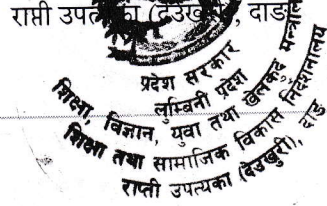 राप्ती उपत्यका (देउखुरी), दाङ
प्रदेश सरकार
लुम्बिनी प्रदेश
शिक्षा, विज्ञान, युवा तथा खेलकुद मन्त्रालय
शिक्षा तथा सामाजिक विकास निर्देशनालय
राप्ती उपत्यका (देउखुरी), दाङ